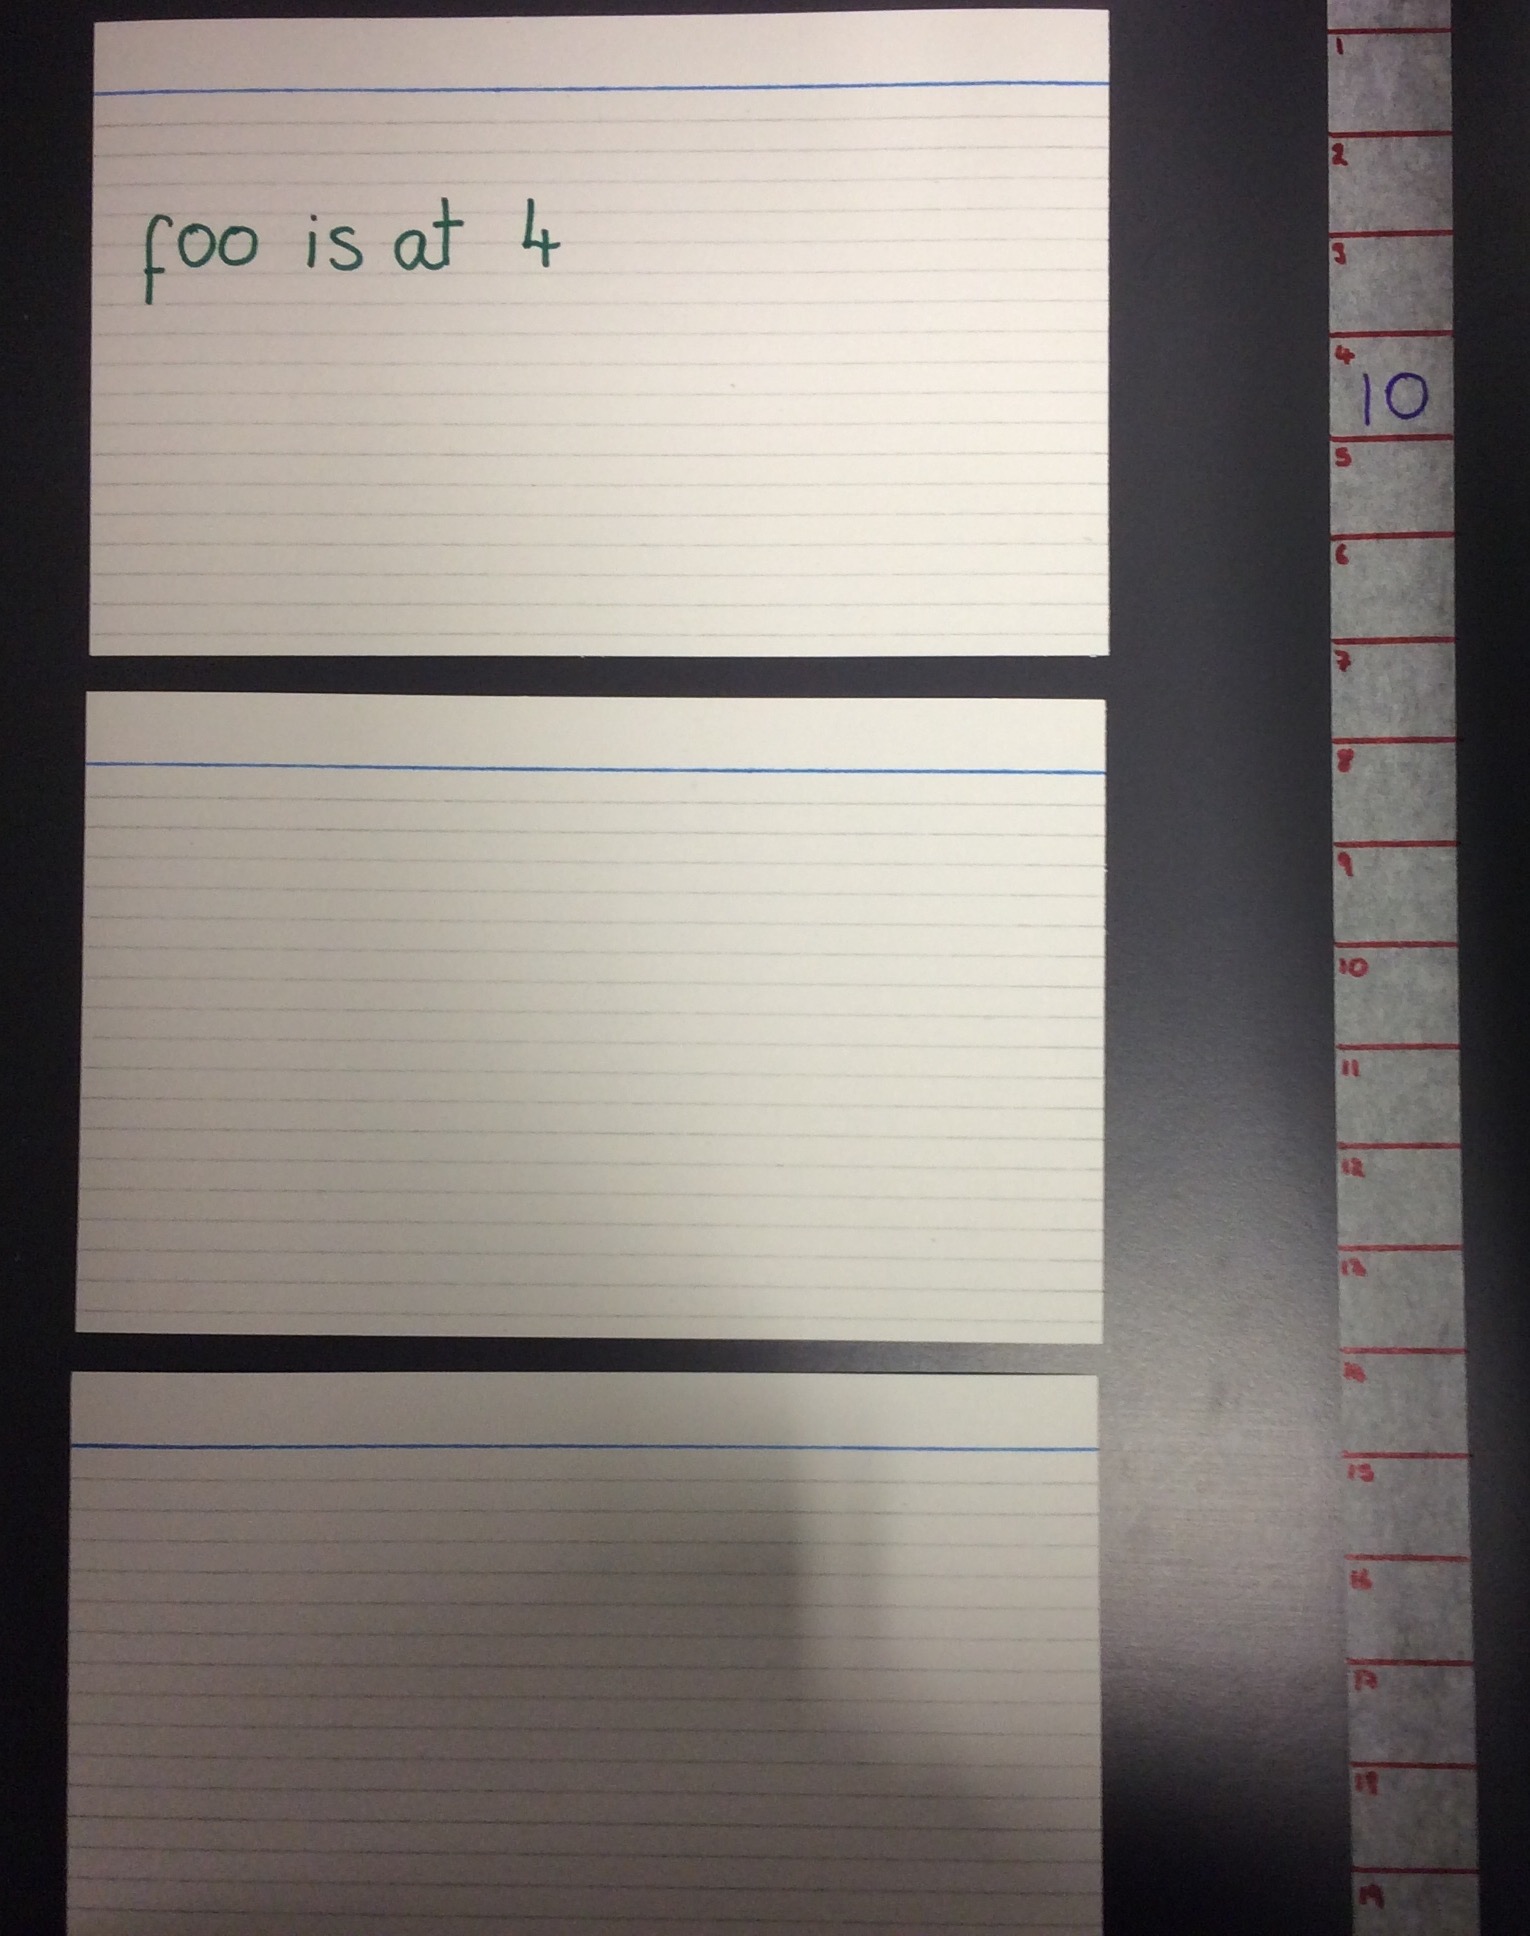 foo is at 4
1
2
3
4
10
5
6
7
8
9
10
11
12
13
15
16
17
18
19